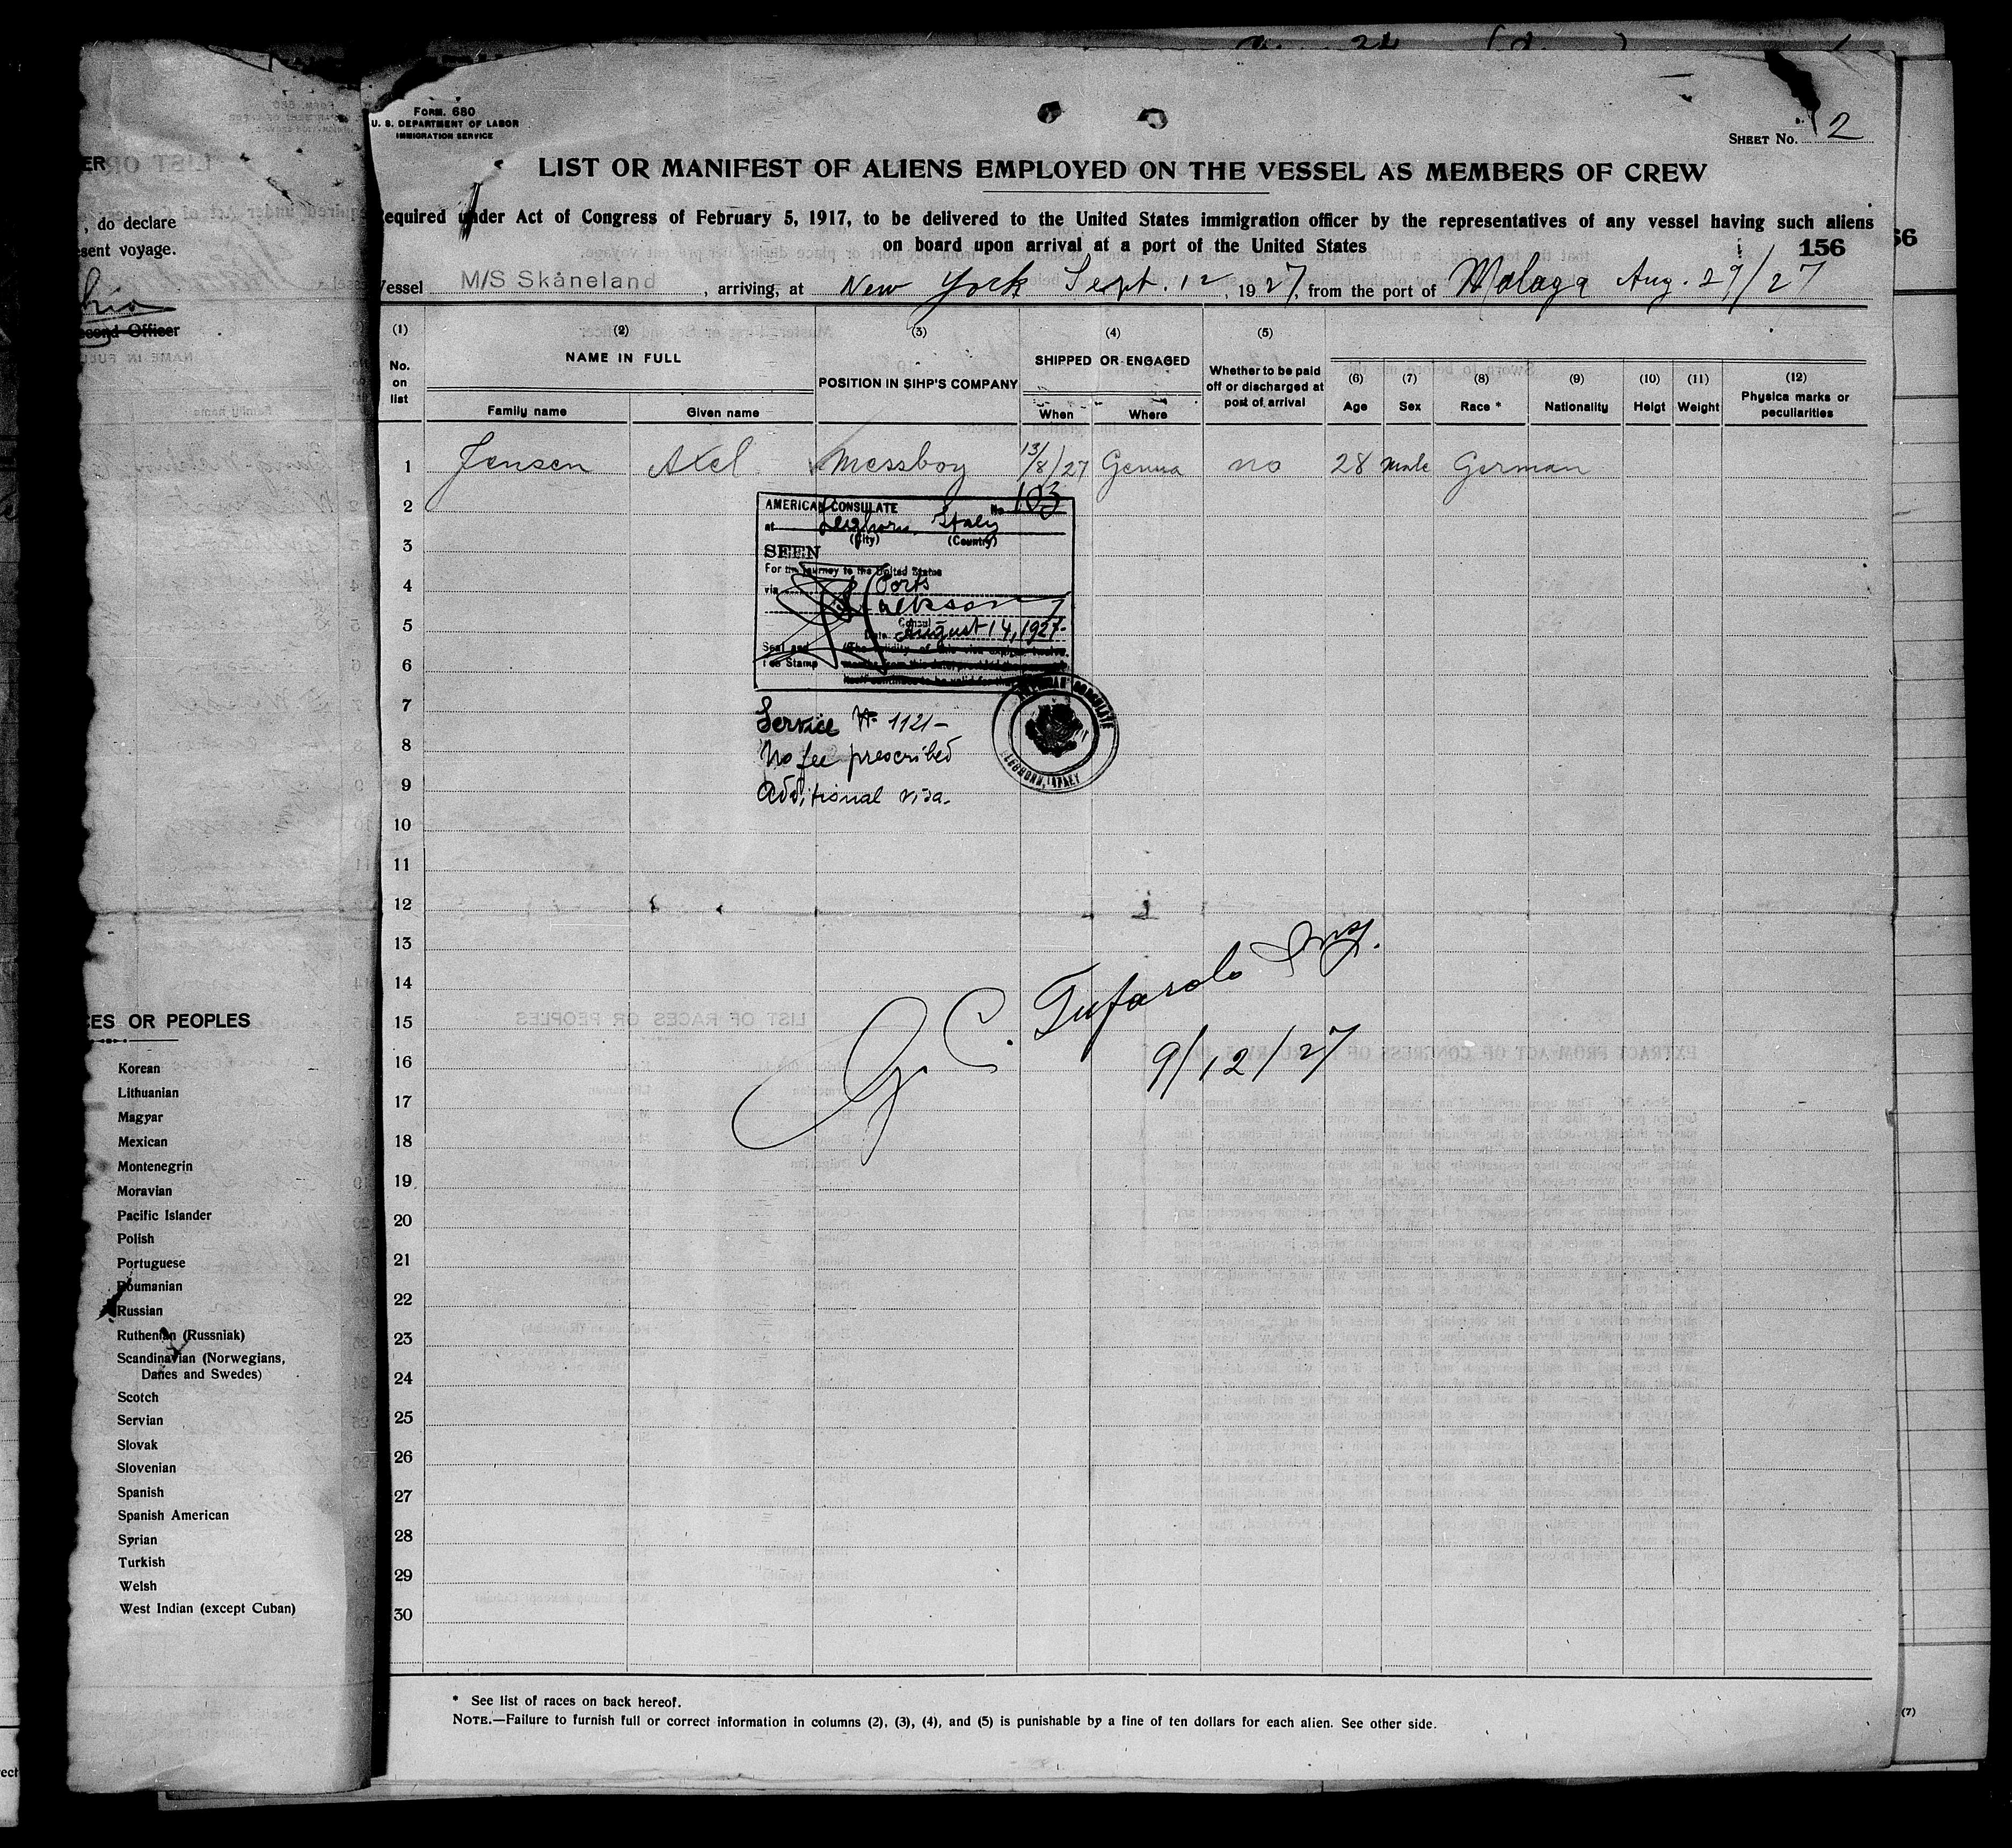 ER
, do declare
sent voyage.
Second Officer
CES OR PEOPLES
Korean
Lithuanian
Magyar
Mexican
Montenegrin
Moravian
Pacific Islander
Polish
Portuguese
Roumanian
Russian
Ruthenian (Russniak)
Scandinavian (Norwegians,
Danes and Swedes)
Scotch
Servian
Slovak
Slovenian
Spanish
Spanish American
Syrian
Turkish
Welsh
West Indian (except Cuban)
FORM. 680
U. S. DEPARTMENT OF LABOR
IMMIGRATION SERVICE
SHEET No. 2
LIST OR MANIFEST OF ALIENS EMPLOYED ON THE VESSEL AS MEMBERS OF CREW
Required under Act of Congress of February 5, 1917, to be delivered to the United States immigration officer by the representatives of any vessel having such aliens
on board upon arrival at a port of the United States
156
Vessel M/S Skåneland, arriving, at New York Sept. 12, 1927, from the port of Malaga Aug. 29/27
(1) (2) (3) (4) (5)
No. on list
NAME IN FULL
Family name Given name
POSITION IN SIHP'S COMPANY
SHIPPED OR ENGAGED
When Where
Whether to be paid off or discharged at post of arrival
(6) (7) (8) (9) (10) (11) (12)
Age Sex Race * Nationality Heigt Weight Physica marks or peculiarities
1 Jensen Axel Messboy 13/8/27 Genua no 28 male German
2
3
4
5
6
7
8
9
10
11
12
13
14
15
16
17
18
19
20
21
22
23
24
25
26
27
28
29
30
AMERICAN CONSULATE No 103
at Leghorn, Italy
(City) (Country)
SEEN
For the journey to the United States
via Ports
Consul
Date August 14, 1927.
Seal and
Fee Stamp
AMERICAN CONSULATE
LEGHORN, ITALY
Service No 1121-
No fee prescribed
Additional visa.
G. C. Tufarolo Insp.
9/12/27
* See list of races on back hereof.
NOTE.—Failure to furnish full or correct information in columns (2), (3), (4), and (5) is punishable by a fine of ten dollars for each alien. See other side.
(7)